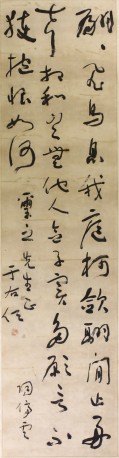 翩々飛鳥息我庭柯斂翮閒止好
声相和豈無他人念子實多願言不
獲抱恨如何
先生正
于右任
陶停雲